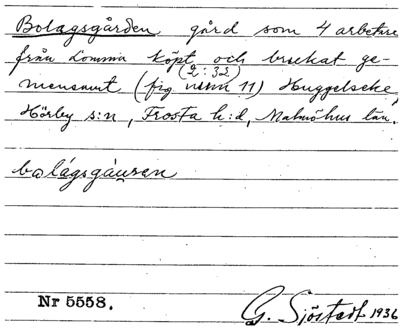 Bolagsgården gård som 4 arbetare
från Lomma köpt och brukat ge-
(2:32)
mensamt (fig 11) Huggelseke,
Hörby s:n, Frosta h:d, Malmöhus län.
bolágsgåuren
Nr 5558.
G. Sjöstedt 1936